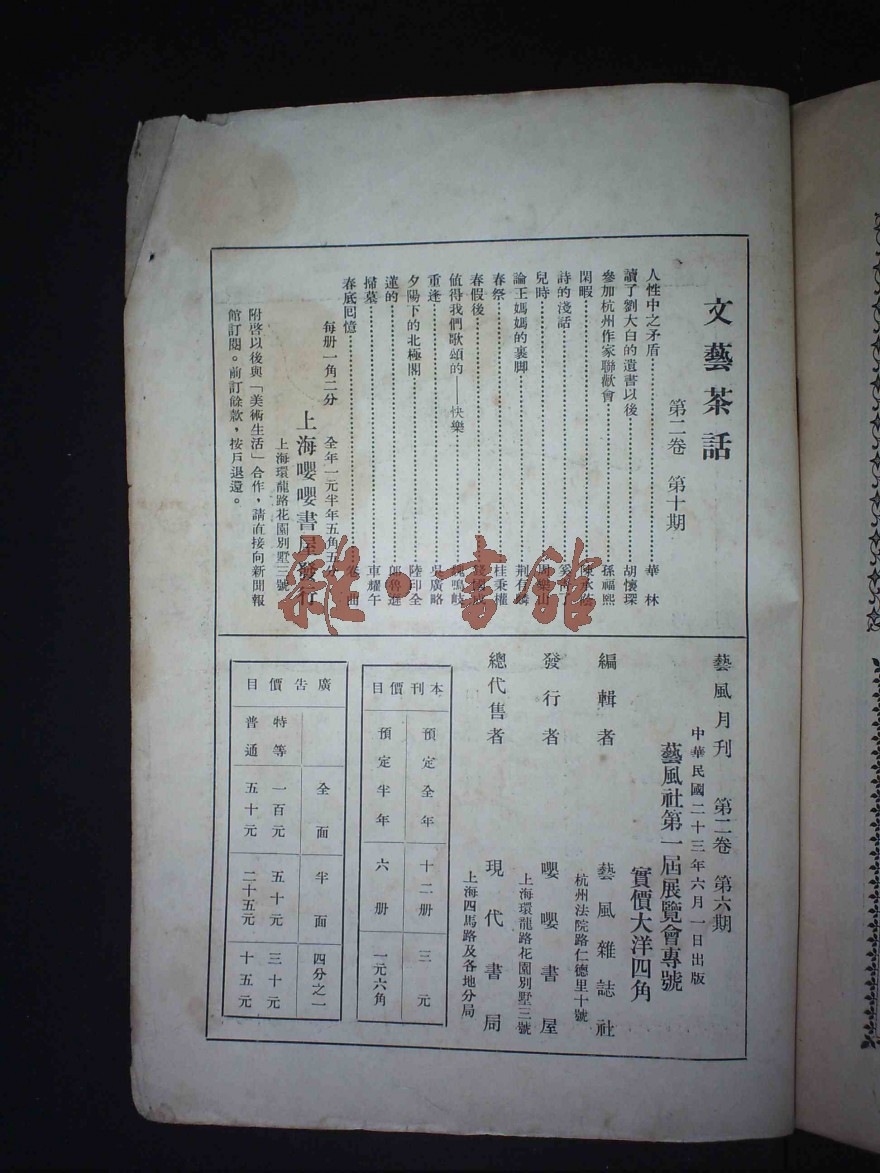 文藝茶話
第二卷 第十期
人性中之矛盾 華林
讀了劉大白的遺書以後 胡懷琛
參加杭州作家聯歡會 孫福熙
閑暇 陳承蔭
詩的淺話
兒時 周樂山
論王媽媽的裹脚 荆有麟
春祭 桂秉權
春假後
值得我們歌頌的——快樂 魏鳴岐
重逢 吳廣略
夕陽下的北極閣 陸印全
蓮的 郎魯遜
掃墓 車耀午
春底囘憶 曲
每册一角二分 全年一元半年五角五分
上海嚶嚶書屋發行
上海環龍路花園別墅三號
附啓以後與「美術生活」合作，請直接向新聞報
館訂閱。前訂餘款，按戶退還。
藝風月刊 第二卷 第六期
中華民國二十三年六月一日出版
藝風社第一屆展覽會專號
實價大洋四角
編輯者 藝風雜誌社
杭州法院路仁德里十號
發行者 嚶嚶書屋
上海環龍路花園別墅三號
總代售者 現代書局
上海四馬路及各地分局
本刊價目
預定全年 十二册 三元
預定半年 六册 一元六角
廣告價目
全面 半面 四分之一
特等 一百元 五十元 三十元
普通 五十元 二十五元 十五元
雜·書館